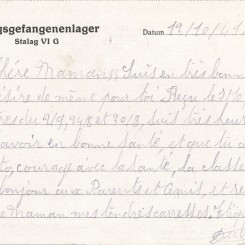 gsgefangenenlager
Stalag VI G
Datum 19/10/41
Chére Maman Suis en très bonne
désire de même pour toi Reçu le 3/10
du 2/9, 24/8 et 30/8, suis très heur
avoir en bonne Santé, et que tu a
to, courage avec la Santé, la classe
Bonjour aux Parents et Amis, et re
Maman mes tendres caresses.